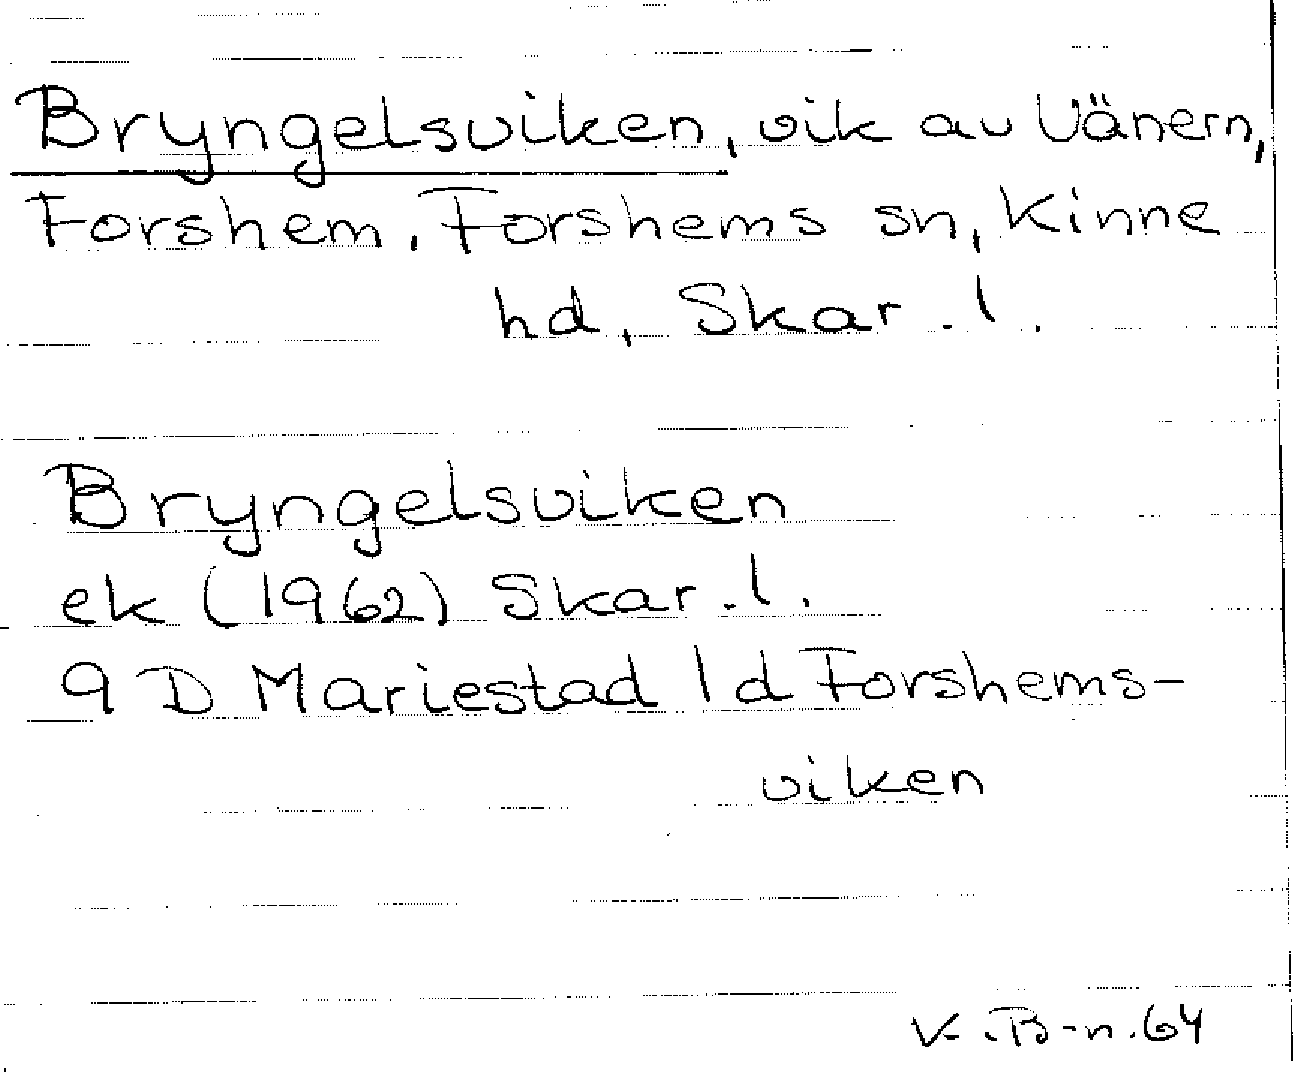 Bryngelsviken, vik av Vänern,
Forshem, Forshems sn, Kinne
hd, Skar. l.
Bryngelsviken
ek (1962) Skar. l.
9 D Mariestad 1 d Forshems-
viken
K.B-n.64